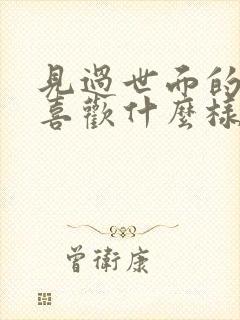 見過世面的
喜歡什麼樣
曾衛康